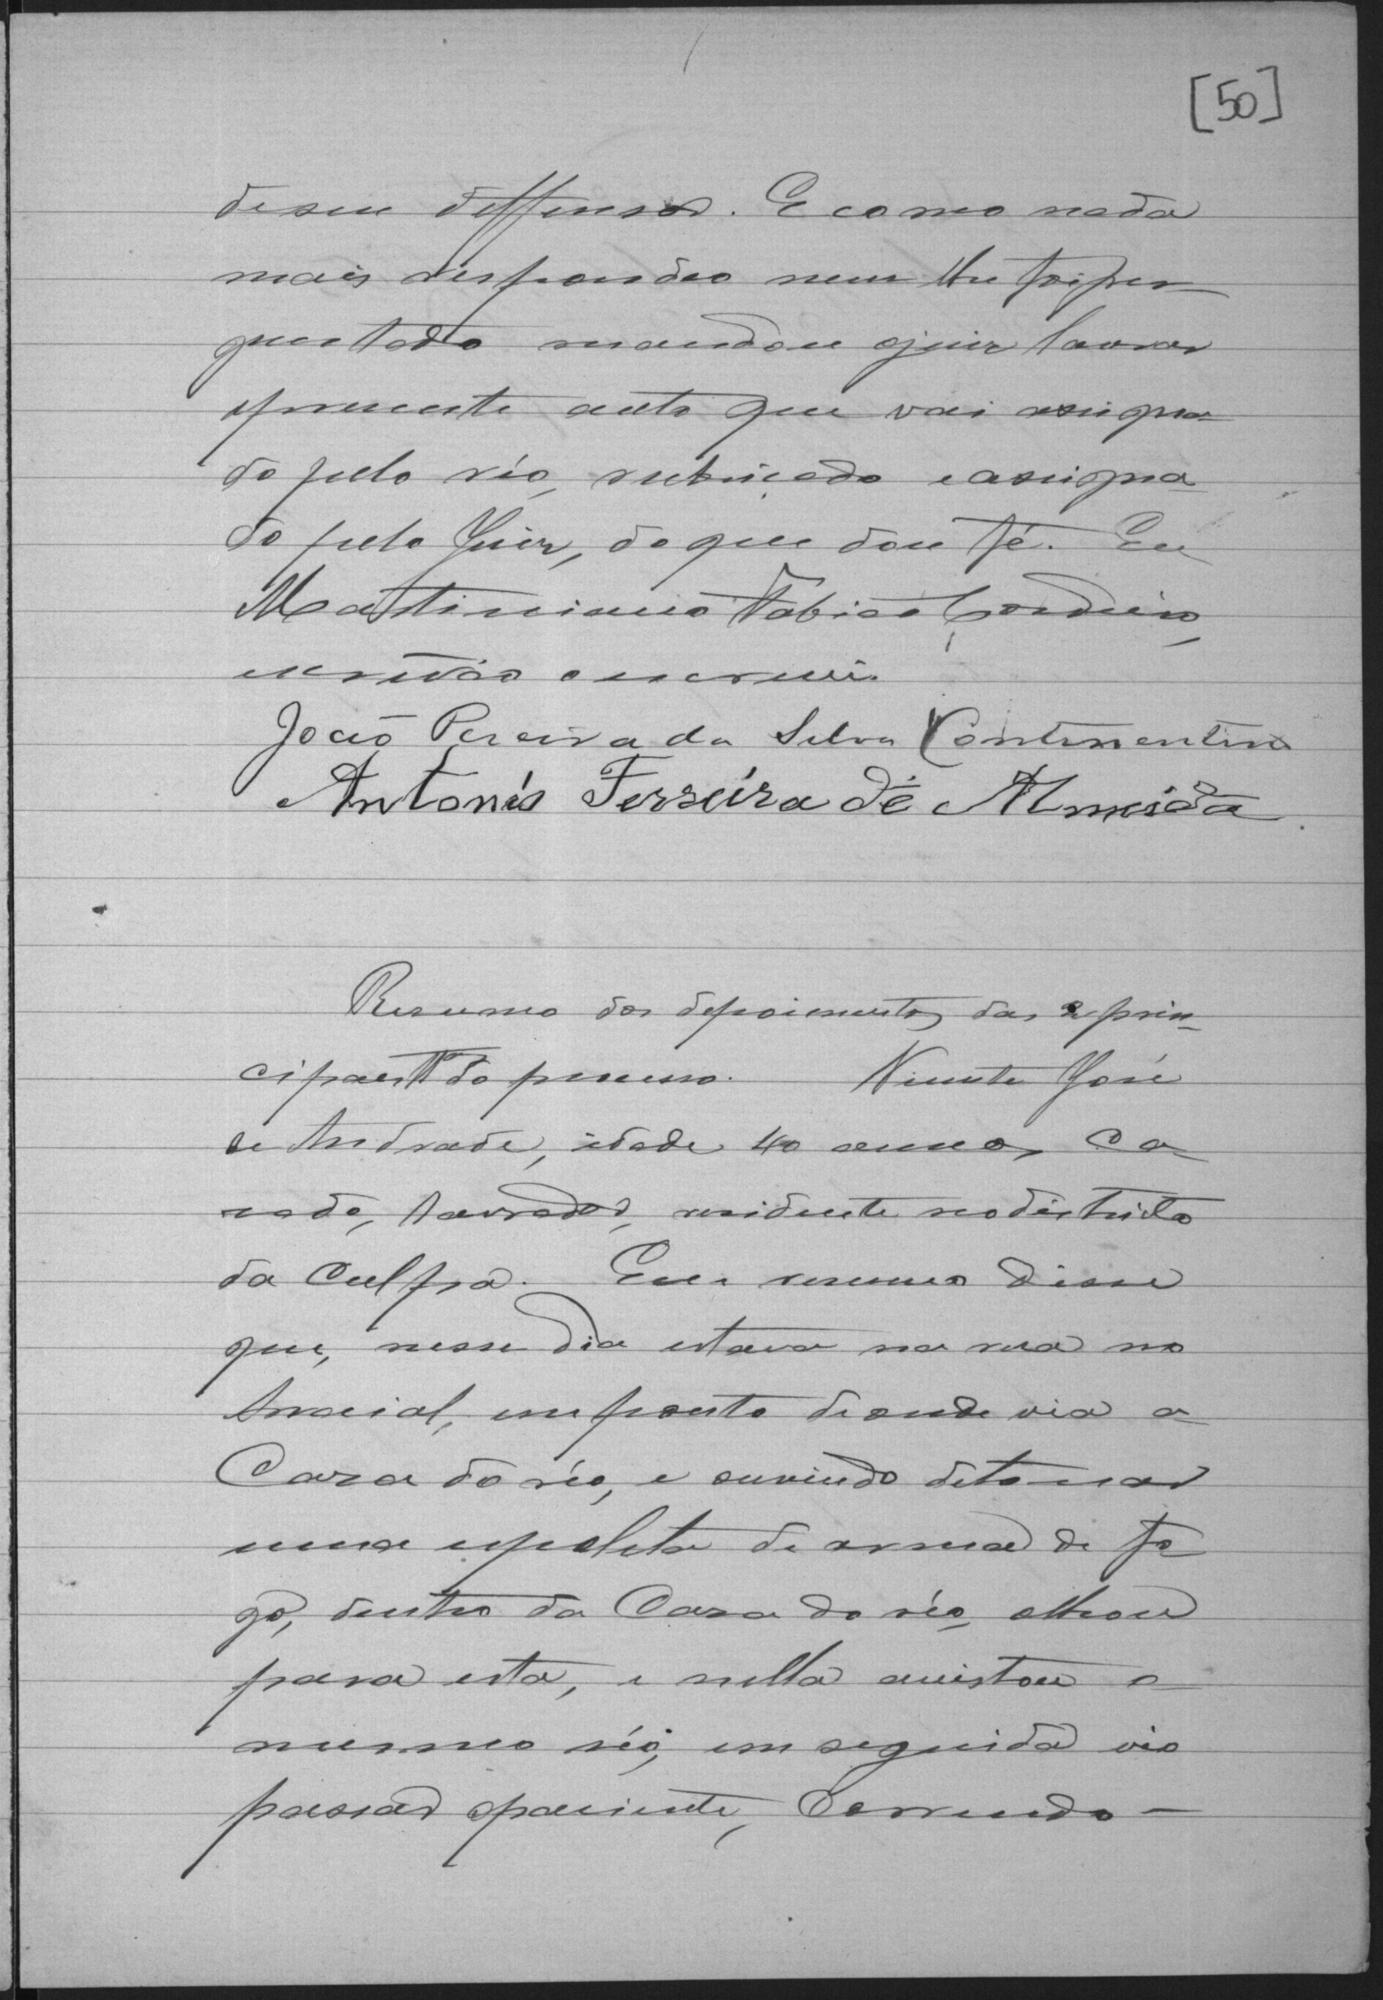 [50]
de seu deffensor. E como nada
mais respondeo nem lhe foi per-
guntado mandou o juiz lavrar
o presente auto que vai assigna-
do pelo réo, rubricado e assigna
do pelo Juiz, do que dou fé. Eu
Martiniano Fabião Cordeiro,
escrivão o escrevi.
João Pereira da Silva Continentino
Antonio Ferreira de Almeida
Resumo dos depoimentos das prin-
cipaes do processo. Vicente José
de Andrade, idade 40 annos, ca-
sado, lavrador, residente no districto
da culpa. Em resumo disse
que, nesse dia estava na rua no
Arraial, em ponto de onde via a
Caza do réo, e ouvindo detonar
uma espoleta de arma de fo-
go, dentro da Caza do réo, olhou
para esta, e nella avistou o
mesmo réo; em seguida vio
passar o paciente, correndo -